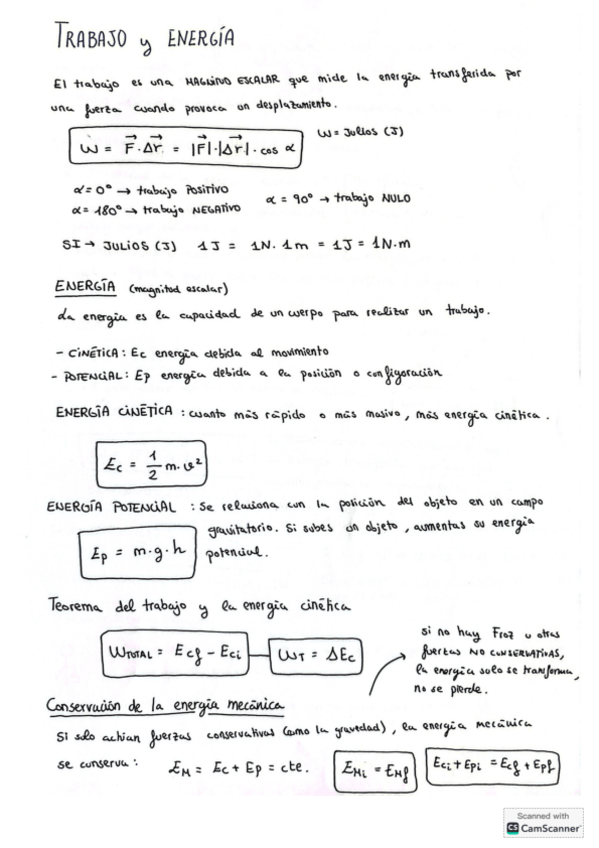 TRABAJO y ENERGÍA
El trabajo es una MAGNITUD ESCALAR que mide la energía transferida por
una fuerza cuando provoca un desplazamiento.
W = F⃗·Δr⃗ = |F⃗|·|Δr⃗|· cos α
W = Julios (J)
α = 0° → trabajo POSITIVO
α = 180° → trabajo NEGATIVO
α = 90° → trabajo NULO
SI → JULIOS (J) 1J = 1N. 1m = 1J = 1N.m
ENERGÍA (magnitud escalar)
La energía es la capacidad de un cuerpo para realizar un trabajo.
- CINÉTICA: Ec energía debida al movimiento
- POTENCIAL: Ep energía debida a la posición o configoración
ENERGÍA CINÉTICA : cuanto más rápido o más masivo, más energía cinética.
Ec = 1/2 m.v²
ENERGÍA POTENCIAL : Se relaciona con la posición del objeto en un campo
gravitatorio. Si subes un objeto, aumentas su energía
potencial.
Ep = m.g.h
Teorema del trabajo y la energía cinética
WTOTAL = Ecf - Eci
WT = ΔEc
si no hay Froz u otras
fuerzas NO CONSERVATIVAS,
la energía solo se transforma,
no se pierde.
Conservación de la energía mecánica
Si solo actúan fuerzas conservativas (como la gravedad), la energía mecánica
se conserva: EM = Ec + Ep = cte. EMi = EMf Eci + Epi = Ecf + Epf
Scanned with
CS CamScanner